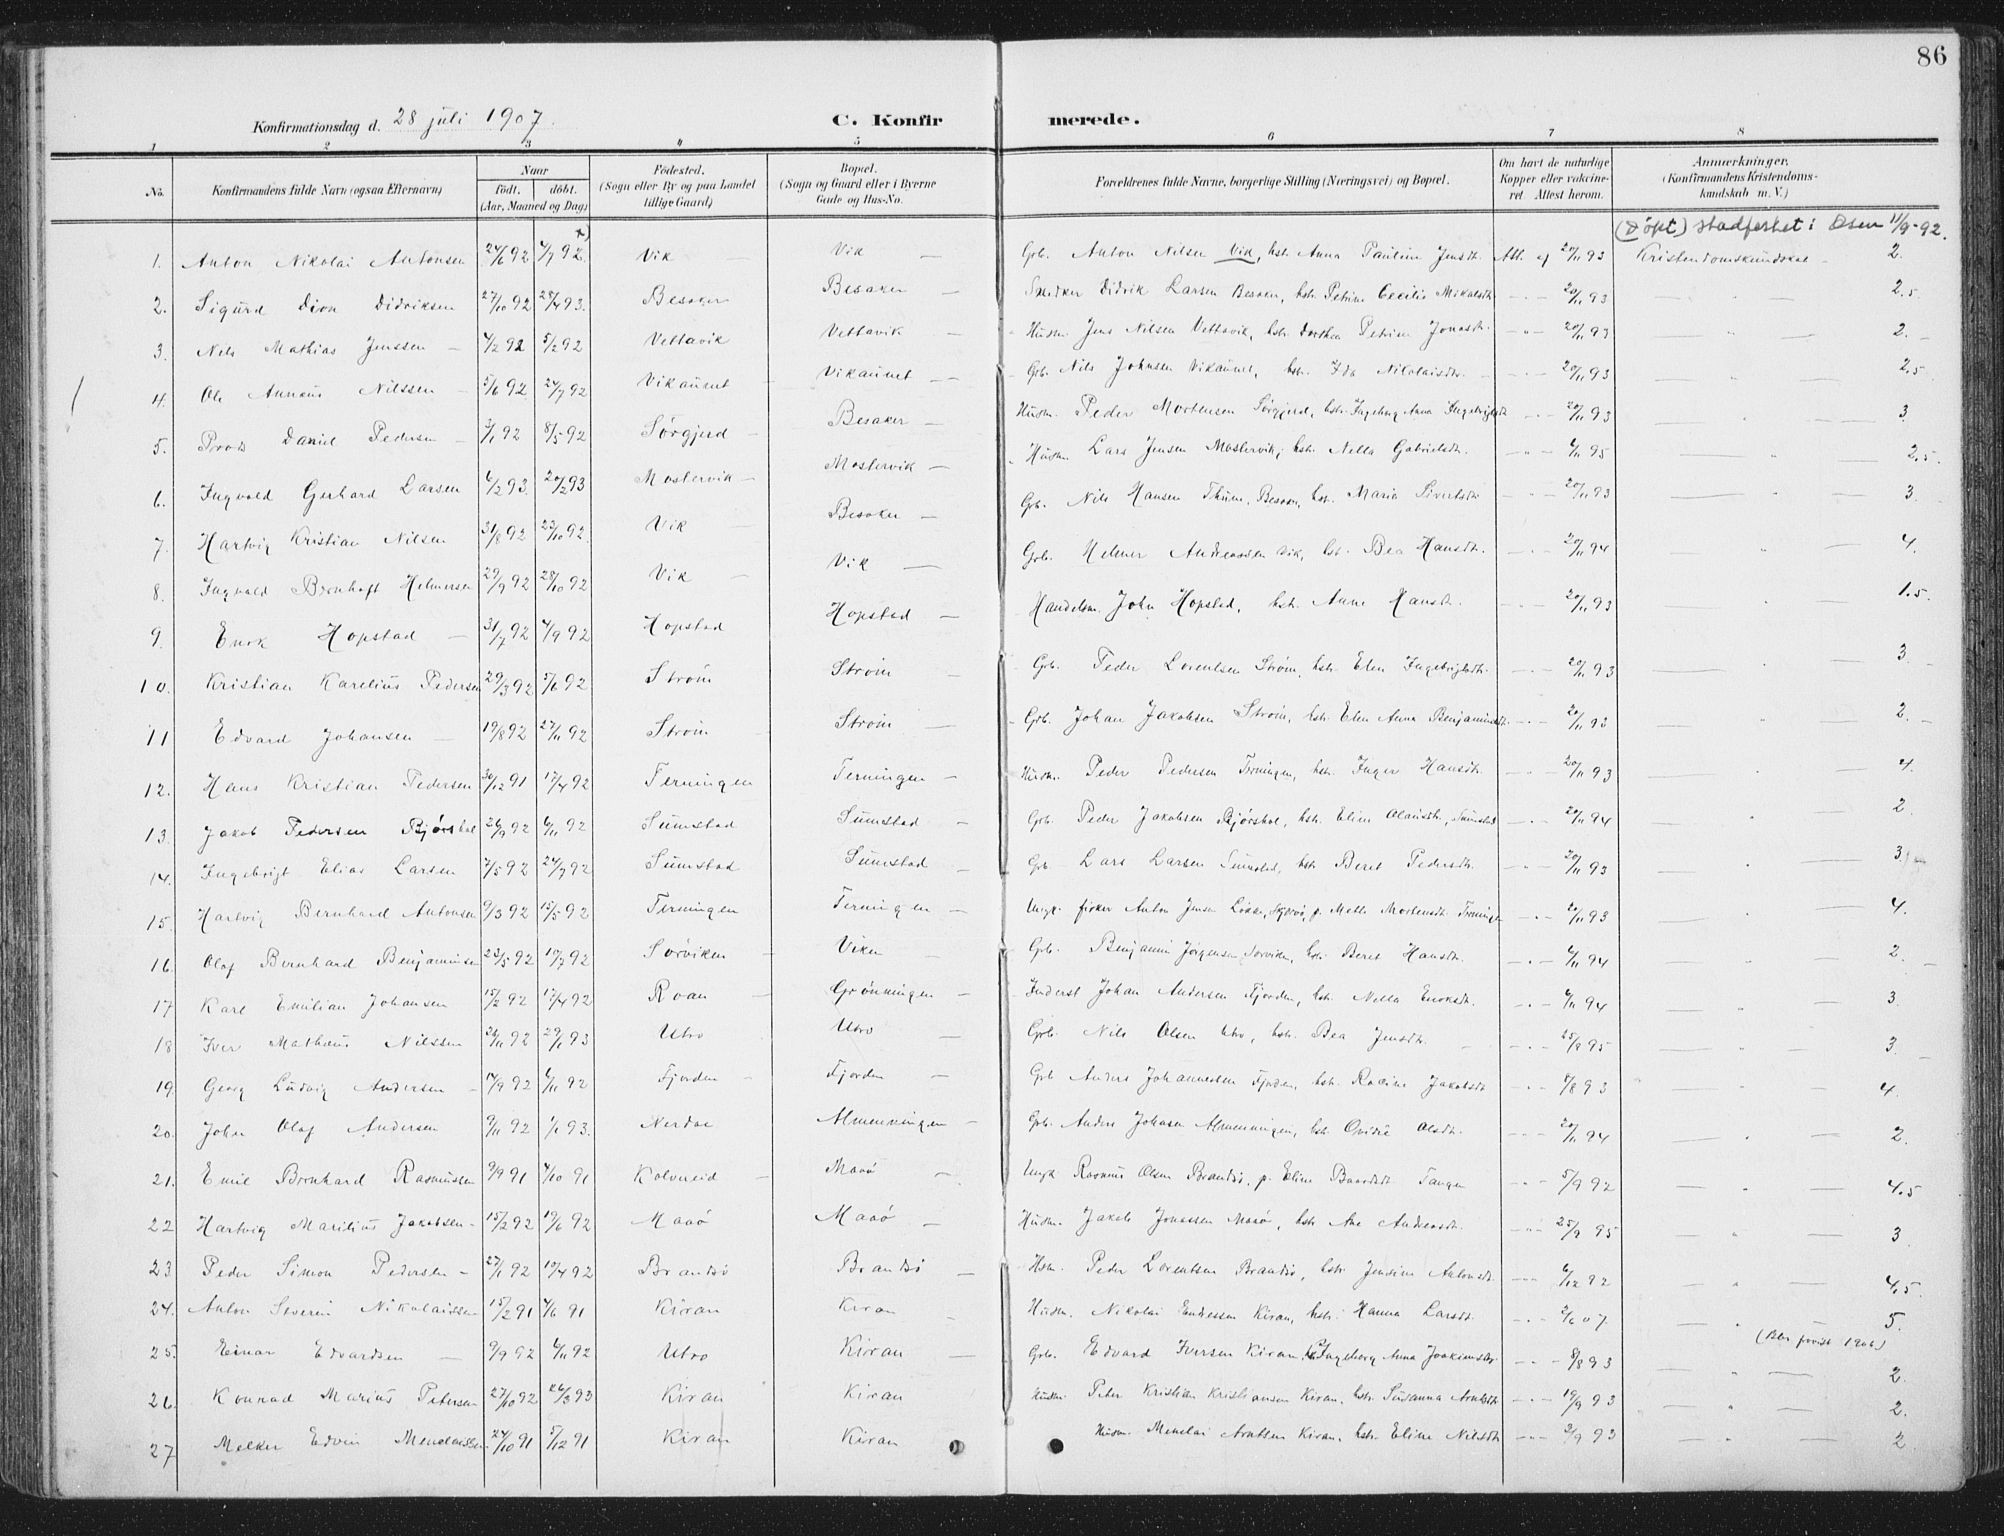 86
Konfirmationsdag d. 28 juli 1907. C. Konfirmerede.
1 2 3 4 5 6 7 8
No. Konfirmandens fulde Navn (ogsaa Efternavn) Naar födt. döbt. (Aar, Maaned og Dag) Födested. (Sogn eller By og paa Landet tillige Gaard) Bopæl. (Sogn og Gaard eller i Byerne Gade og Hus-No. Forældrenes fulde Navne, borgerlige Stilling (Næringsvei) og Bopæl. Om havt de naturlige Kopper eller vakcineret. Attest herom. Anmærkninger. (Konfirmandens Kristendomskundskab m. V.)
(Döpt) stadfestet i Osen 11/9-92.
1. Anton Nikolai Antonsen 24/6 92 4/7 92 x) Vik Vik Grb. Anton Nilsen Vik, hstr. Anna Pauline Jensdt. Att. af 20/11 93 Kristendomskundskab 2.
2. Sigurd Dion Didriksen 27/10 92 28/4 93. Besaker Besaker Snedker Didrik Larsen Besaker, hstr. Petrine Cecilie Mikalsdtr. 20/11 93 2.5
3. Nils Mathias Jenssen 4/2 92 5/2 92 Vettavik Vettavik Husm. Jens Nilsen Vettavik, hstr. Dorthea Petrine Jonasdtr. 20/11 93 2.
4. Ole Nilssen 5/6 92 24/7 92 Vikaunet Vikaunet Grb. Nils Johnsen Vikaunet, hstr. Ida Nikolaisdtr. 20/11 93 2.5
5. Daniel Pedersen 3/1 92 8/5-92 Sörgjerd Besaker Husm. Peder Mortensen Sörgjerd, hstr. Ingeborg Anna Ingebrigtsdt. 20/11 93 3
6. Ingvald Gerhard Larsen 6/2 93. 20/2 93 Mostervik Mostervik Husm. Lars Jensen Mostervik, hstr. Nella Gabrielsdtr. 6/11 95 2.5.
7. Hartvig Kristian Nilsen 31/8 92 23/10 92. Vik Besaker Grb. Nils Hansen Thüm, Besaker, hstr. Maria Sivertsdtr. 20/11 93 3.
8. Ingvald Bernhoft Helmersen 29/9 92 28/10 92 Vik Vik Grb. Helmer Andreassen Vik, hstr. Bea Hansdtr. 20/11 94 4.
9. Enok Hopstad 31/7 92 4/9 92 Hopstad Hopstad Handelsm. John Hopstad, hstr. Anne Hansdtr. 20/11 93 1.5.
10. Kristian Karelius Pedersen 29/3 92 5/6 92 Ström Ström Grb. Peder Lorentsen Ström, hstr. Elen Ingebrigtsdtr. 20/11 93 3
11 Edvard Johansen 19/8 92 27/11 92 Ström Ström Grb. Johan Jakobsen Ström, hstr. Elen Anna Benjaminsdt. 20/11 93 2.
12. Hans Kristian Pedersen 30/12 91 17/4 92 Terningen Terningen Husm. Peder Pedersen Terningen, hstr. Inger Hansdtr. 20/11 93 4.
13. Jakob Pedersen Bjørshol 26/9 92 6/11 92 Sumstad Sumstad Grb. Peder Jakobsen Bjørshol, hstr. Eline Olausdtr., Sumstad 20/11 94 2.
14. Ingebrigt Elias Larsen 7/5 92 24/7 92 Sumstad Sumstad Grb. Lars Larsen Sumstad, hstr. Beret Pedersdtr. 20/11 93 3.
15. Hartvig Bernhard Antonsen 9/3 92 15/5 92 Terningen Terningen Ungk. fisker Anton Jensen p. Mette Mortensdtr. Terningen 20/11 93 4.
16. Olaf Bernhard Benjaminsen 23/5 92 17/7 92 Sörviken Viken Grb. Benjamin Jörgensen Sorviken, hstr. Beret Hansdtr. 6/11 94 2.
17 Karl Emilian Johansen 15/2 92 17/4 92 Roan Grönningen Inderst Johan Andersen Fjorden, hstr. Nella Enoksdtr. 6/11 94 3.
18 Iver Mathæus Nilssen 26/11 92 29/1 93 Utro Utro Grb. Nils Olsen Utro, hstr. Bea Jensdtr. 25/8 95 3.
19. Georg Ludvig Andersen 17/9 92 6/11 92 Fjorden Fjorden Grb Anders Johannessen Fjorden, hstr. Rasine Jakobsdt. 8/8 93 4.
20. John Olaf Andersen 9/11 92 1/1 93. Nerdal Almenningen Grb. Anders Johnsen Almenningen, hstr. Olsdtr. 20/11 94 2.
21. Emil Bernhard Rasmussen 9/9 91 4/10 91 Kalvneid Maaö Ungk Rasmus Olsen Brandsö, p. Eline Baardsdt. Tangen 5/9 92 4.5
22 Hartvig Marilius Jakobsen 15/2 92 19/6 92 Maaö Maaö Husm. Jakob Jonassen Maaö, hstr. Ane Andreasdtr. 25/9 95 3
23 Peder Simon Pedersen 27/1 92 10/4 92 Brandsö Brandsö Hsm. Peder Lorentsen Brandsö, hstr. Jensine Antonsdt. 6/12 92 4.5
24. Anton Severin Nikolaissen 15/2 91 4/6 91 Kiran Kiran Husm. Nikolai Endressen Kiran, hstr. Hanna Larsdt. 2/6 07. 5.
(Blev forvist 1906)
25. Einar Edvardsen 9/9 92 6/11 92 Utro Kiran Grb. Edvard Iversen Kiran, Ingeborg Anna Joakimsdtr. 8/8 93 2.
26. Konrad Marius Petersen 27/10 92 26/3 93 Kiran Kiran Husm. Peter Kristian Kristiansen Kiran, hstr. Susanna Arntsdtr. 19/9 93 2.
27 Melker Edvin Menelaissen 24/10 91 5/12 91 Kiran Kiran Husm. Menelai Arntsen Kiran, hstr. Eline Nilsdtr. 2/9 93 2